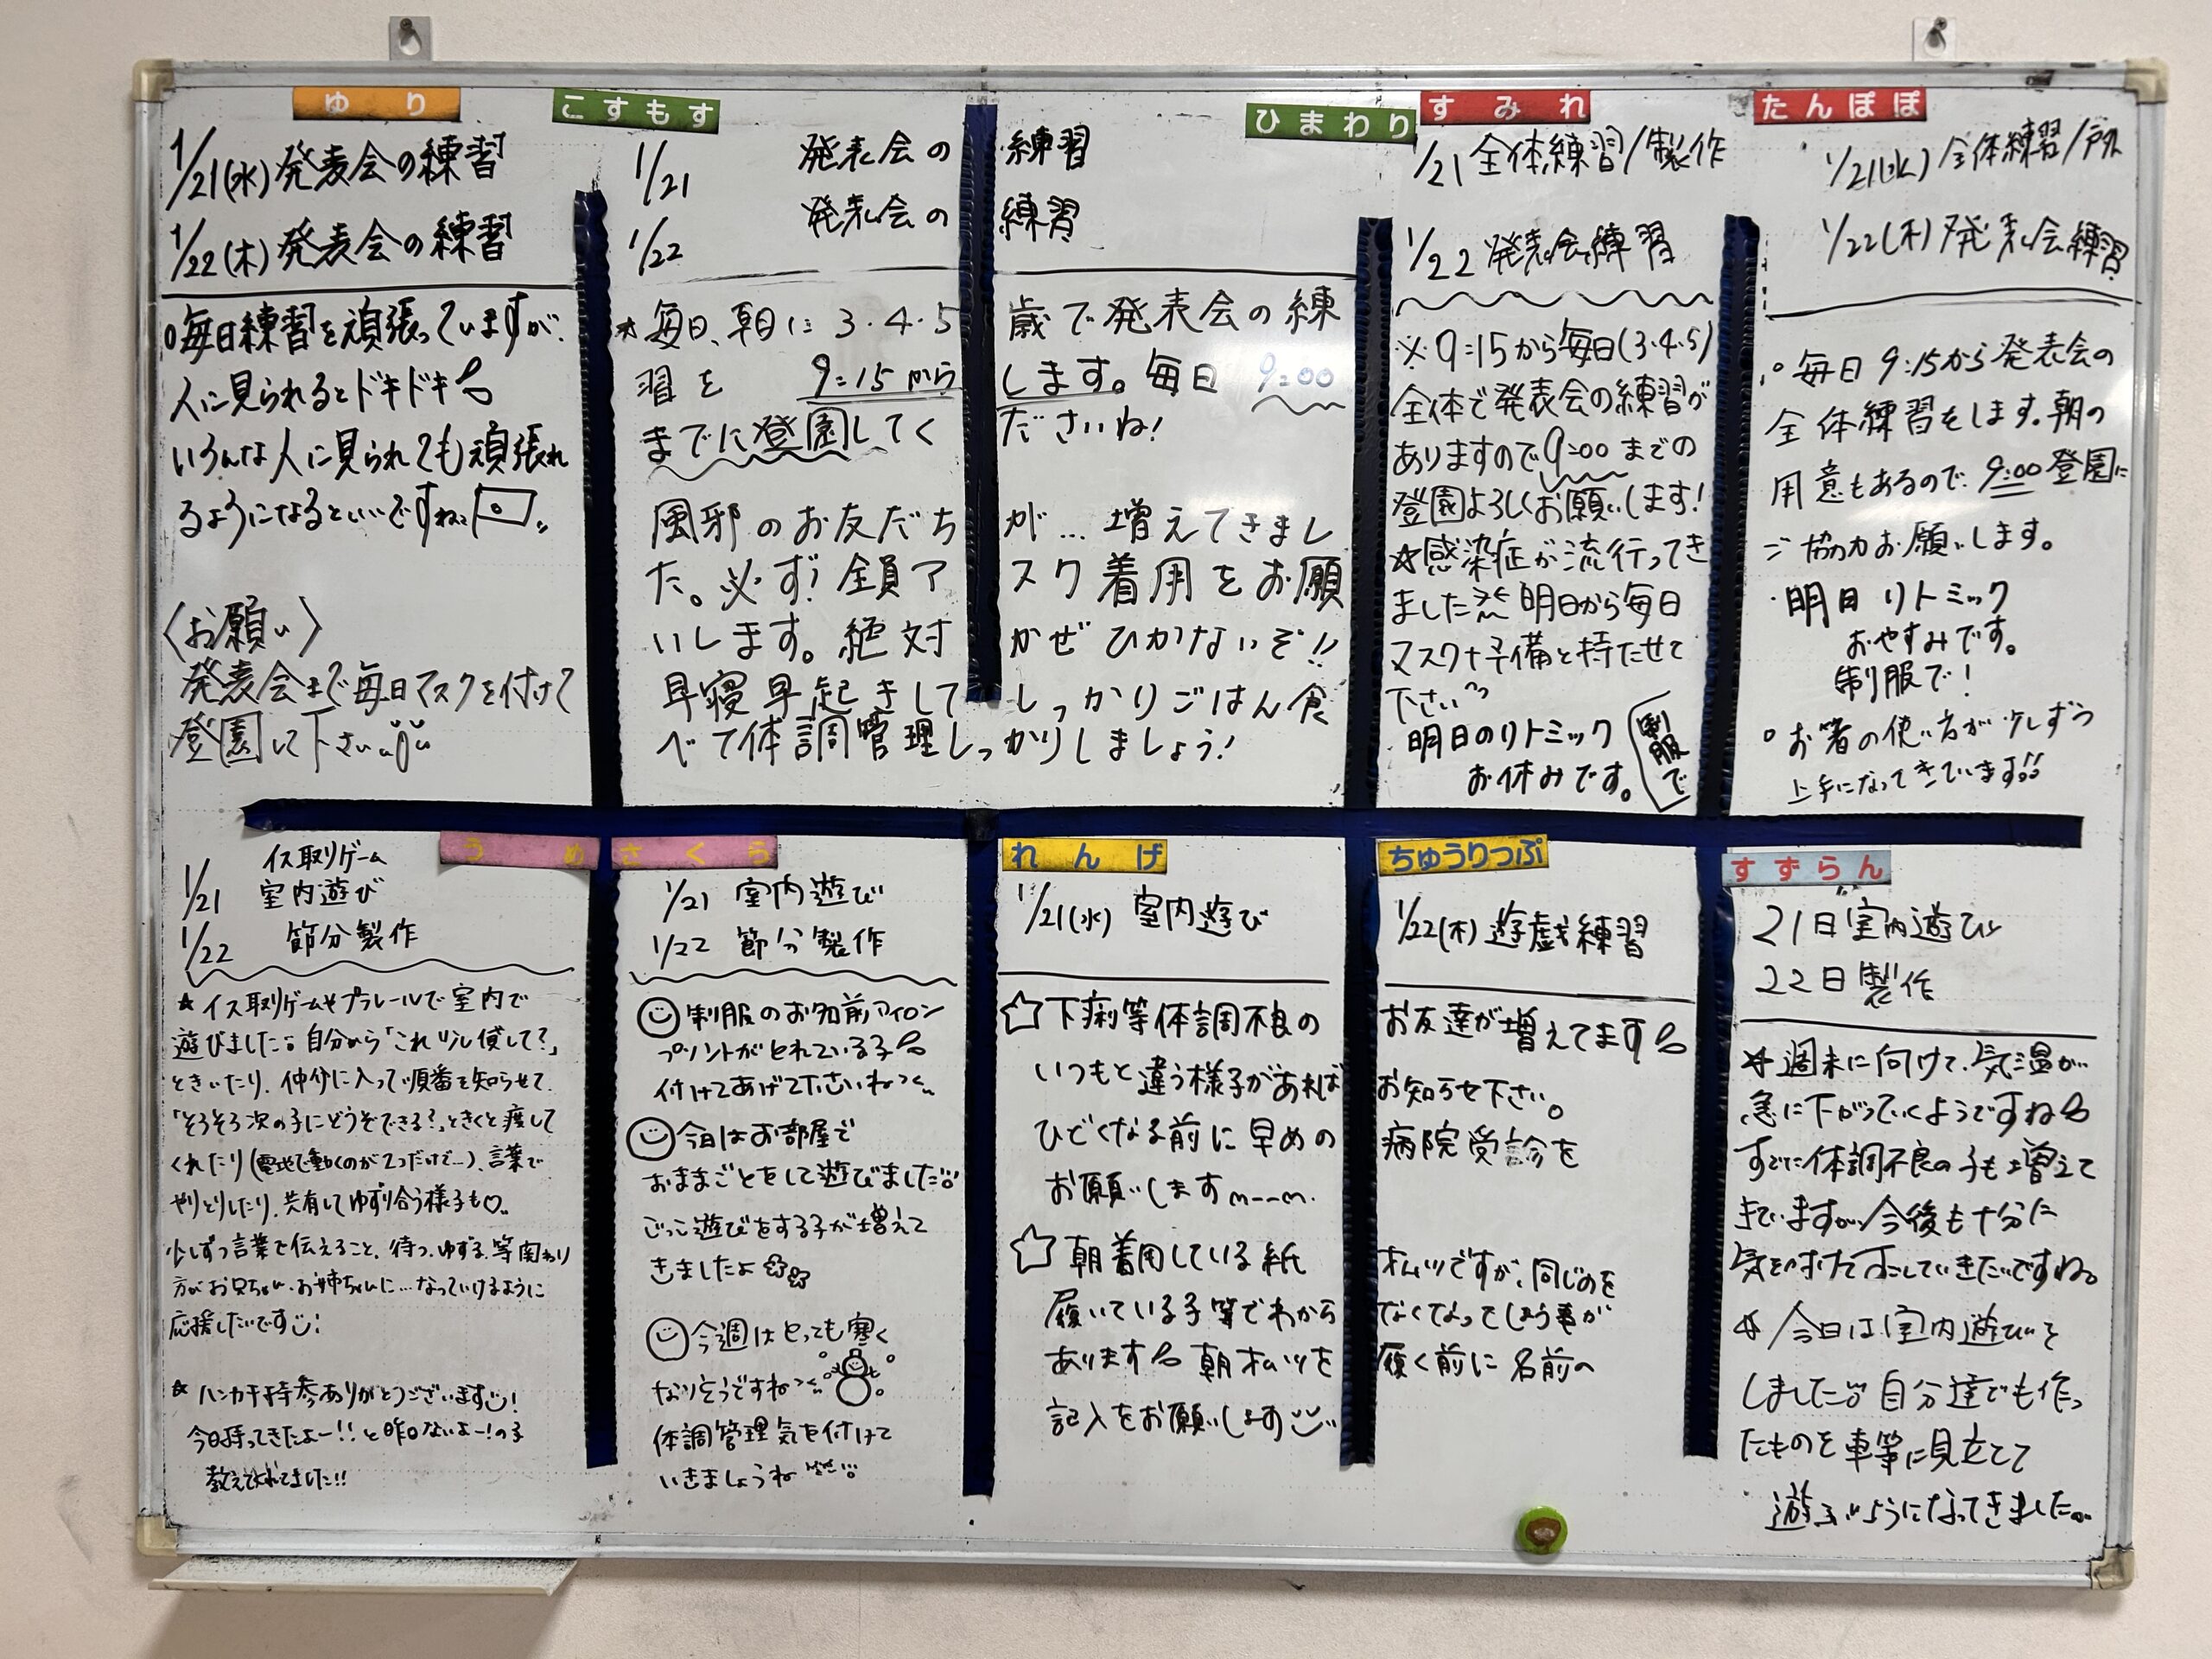 ゆり
1/21(水)発表会の練習
1/22(木)発表会の練習
○毎日練習を頑張っていますが、
人に見られるとドキドキ
いろんな人に見られても頑張れ
るようになるといいですね
〈お願い〉
発表会まで毎日マスクを付けて
登園して下さい
こすもす ひまわり
1/21 発表会の練習
1/22 発表会の練習
★毎日、朝に3・4・5歳で発表会の練
習を 9:15からします。毎日 9:00
までに登園してくださいね!
風邪のお友だちが…増えてきまし
た。必ず!全員マスク着用をお願
いします。絶対かぜひかないぞ!!
早寝早起きしてしっかりごはん食
べて体調管理しっかりしましょう!
すみれ
1/21 全体練習/製作
1/22 発表会練習
※9:15から毎日(3・4・5)
全体で発表会の練習が
ありますので9:00までの
登園よろしくお願いします!
☆感染症が流行ってき
ました 明日から毎日
マスク+予備と持たせて
下さい
明日のリトミック
お休みです。
制服で
たんぽぽ
1/21(水)全体練習/戸外
1/22(木)発表会練習
○毎日9:15から発表会の
全体練習をします。朝の
用意もあるので、9:00登園に
ご協力お願いします。
・明日リトミック
おやすみです。
制服で!
○お箸の使い方が少しずつ
上手になってきています!!
うめ
1/21 イス取りゲーム
室内遊び
1/22 節分製作
★イス取りゲームやプラレールで室内で
遊びました。自分から「これ少し貸して?」
ときいたり、仲介に入って順番を知らせて、
「そろそろ次の子にどうぞできる?」ときくと渡して
くれたり(電池で動くのが2つだけで…)、言葉で
やりとりしたり、共有してゆずり合う様子も♡
少しずつ言葉で伝えること、待つ、ゆずる、等関わり
方がお兄ちゃん・お姉ちゃんに…なっていけるように
応援したいです
★ハンカチ持参ありがとうございます!
今日持ってきたよー!!と昨日ないよー!の子
教えてくれてました!!
さくら
1/21 室内遊び
1/22 節分製作
制服のお名前アイロン
プリントがとれている子
付けてあげて下さいね
今日はお部屋で
おままごとをして遊びました
ごっこ遊びをする子が増えて
きましたよ
今週はとっても寒く
なりそうですね
体調管理気を付けて
いきましょうね
れんげ ちゅうりっぷ
1/21(水) 室内遊び 1/22(木) 遊戯練習
☆下痢等体調不良のお友達が増えてます
いつもと違う様子があればお知らせ下さい。
ひどくなる前に早めの病院受診を
お願いしますm--m.
☆朝着用している紙オムツですが、同じのを
履いている子等でわからなくなってしまう事が
あります 朝オムツを履く前に名前の
記入をお願いします
すずらん
21日室内遊び
22日製作
☆週末に向けて、気温が
急に下がっていくようですね
すでに体調不良の子も増えて
きていますが、今後も十分に
気を付けて過ごしていきたいですね。
☆今日は室内遊びを
しました 自分達でも作っ
たものを車等に見立てて
遊ぶようになってきました